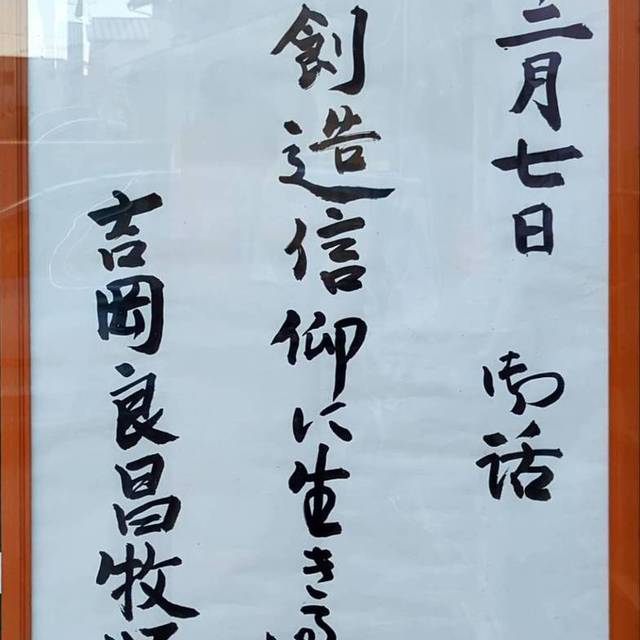 三月七日 御話
創造信仰に生きる
吉岡良昌牧師